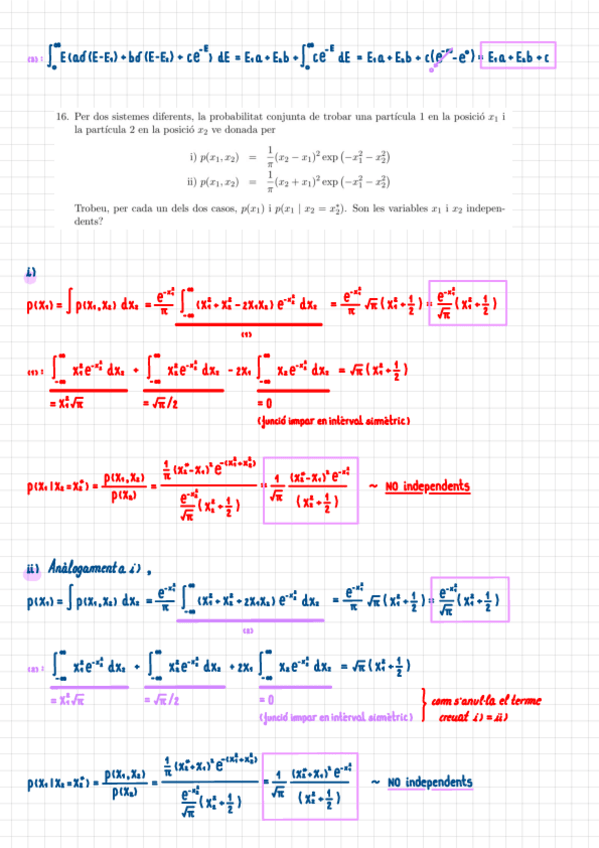 (3): ∫₀^∞ E(aδ(E-E₁) + bδ(E-E₂) + ce^-E) dE = E₁a + E₂b + ∫₀^∞ ce^-E dE = E₁a + E₂b + c(e^-∞ - e⁰) = E₁a + E₂b + c
16. Per dos sistemes diferents, la probabilitat conjunta de trobar una partícula 1 en la posició x₁ i
la partícula 2 en la posició x₂ ve donada per
i) p(x₁, x₂) = 1/π (x₂ − x₁)² exp (−x₁² − x₂²)
ii) p(x₁, x₂) = 1/π (x₂ + x₁)² exp (−x₁² − x₂²)
Trobeu, per cada un dels dos casos, p(x₁) i p(x₁ | x₂ = x₂*). Son les variables x₁ i x₂ indepen-
dents?
i)
p(x₁) = ∫ p(x₁,x₂) dx₂ = e^-x₁²/π ∫_-∞^∞ (x₁² + x₂² - 2x₁x₂) e^-x₂² dx₂ = e^-x₁²/π √π (x₁² + 1/2) = e^-x₁²/√π (x₁² + 1/2)
(1)
(1): ∫_-∞^∞ x₁² e^-x₂² dx₂ + ∫_-∞^∞ x₂² e^-x₂² dx₂ - 2x₁ ∫_-∞^∞ x₂ e^-x₂² dx₂ = √π (x₁² + 1/2)
= x₁²√π = √π/2 = 0
(funció impar en intèrval simètric)
p(x₁|x₂=x₂*) = p(x₁,x₂)/p(x₂) = 1/π (x₂*-x₁)² e^-(x₁²+x₂²) / e^-x₂²/√π (x₂² + 1/2) = 1/√π (x₂*-x₁)² e^-x₁² / (x₂² + 1/2) ~ NO independents
ii) Anàlogament a i),
p(x₁) = ∫ p(x₁,x₂) dx₂ = e^-x₁²/π ∫_-∞^∞ (x₁² + x₂² + 2x₁x₂) e^-x₂² dx₂ = e^-x₁²/π √π (x₁² + 1/2) = e^-x₁²/√π (x₁² + 1/2)
(2)
(2): ∫_-∞^∞ x₁² e^-x₂² dx₂ + ∫_-∞^∞ x₂² e^-x₂² dx₂ + 2x₁ ∫_-∞^∞ x₂ e^-x₂² dx₂ = √π (x₁² + 1/2)
= x₁²√π = √π/2 = 0 com s'anul·la el terme
(funció impar en intèrval simètric) creuat i) = ii)
p(x₁|x₂=x₂*) = p(x₁,x₂)/p(x₂) = 1/π (x₂*+x₁)² e^-(x₁²+x₂²) / e^-x₂²/√π (x₂² + 1/2) = 1/√π (x₂*+x₁)² e^-x₁² / (x₂² + 1/2) ~ NO independents